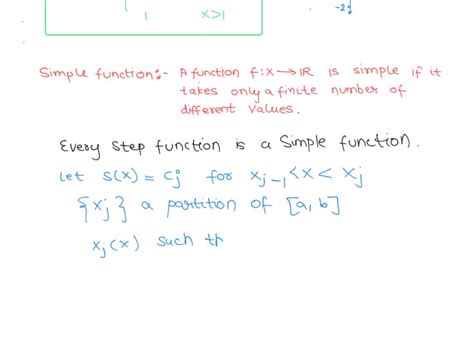 1 x>1
-2
Simple function:- A function f:X→IR is simple if it
takes only a finite number of
different values.
Every step function is a simple function.
Let s(x) = Cj for xj-1 < x < xj
{xj} a partition of [a, b]
xj(x) such th